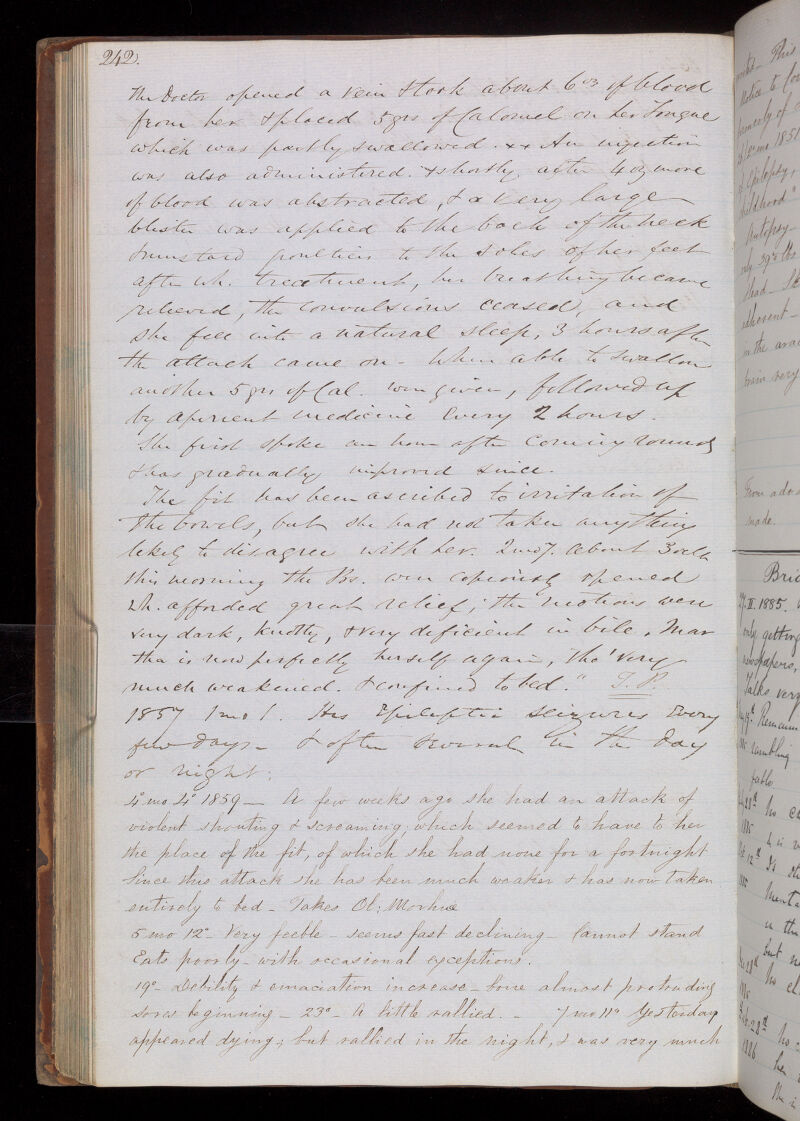 242.
The Doctor opened a vein & took about 6 oz of blood
from her & placed 5 grs of Calomel on her Tongue
which was partly swallowed. xx An injection
was also administered. & shortly after 4 oz more
of blood was abstracted, & a very large
blister was applied to the back of the neck
& mustard poultices to the soles of her feet
after wh. treatment, her breathing became
relieved, the convulsions ceased, and
she fell into a natural sleep, 3 hours after
the attack came on - When able to swallow
another 5 grs of Cal. were given, followed up
by aperient medicine every 2 hours.
She first spoke an hour after coming round
& has gradually improved since.
The fit has been ascribed to irritation of
the bowels, but she had not taken anything
likely to disagree with her. 2 mo 7. about 3 oclk
this morning the Bs. were copiously opened
wh. afforded great relief; the motions were
very dark, knotty, & very deficient in bile. Mar
tha is now perfectly herself again, tho' very
much weakened. & confined to bed." T. P.
1857 1 mo 1. Has Epileptic seizures every
few days - & often several in the day
or night:
4° mo 4° 1859 - A few weeks ago she had an attack of
violent shouting & screaming, which seemed to have to her
the place of the fit, of which she had none for a fortnight
Since this attack she has been much weaker & has now taken
entirely to bed - Takes Ol: Morhuæ
5 mo 12° - Very feeble - seems fast declining - Cannot stand
Eats poorly - with occasional exceptions.
19° - Debility & emaciation increase - bone almost protruding
sores beginning - 23° - A little rallied. - 7 mo 11° Yesterday
appeared dying; but rallied in the night, & was very much
This
Notice to
formerly of
1851
Epilepsy,
childhood"
Autopsy -
39
head -
adherent -
in the
brain very
From
made.
II. 1885.
only getting
newspapers,
Talks very
Remains
rambling
28th
1885
12th
in the
but
28th
1886